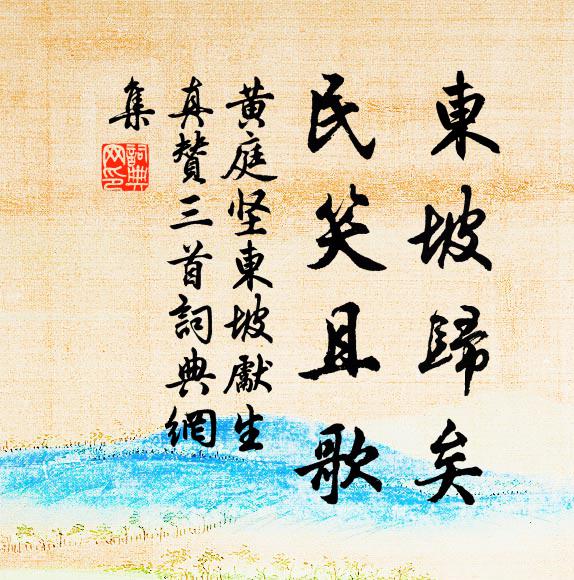 東坡歸矣
民笑且歌
黄庭坚東坡獻生
真赞三首詞典網
集
詞典網印